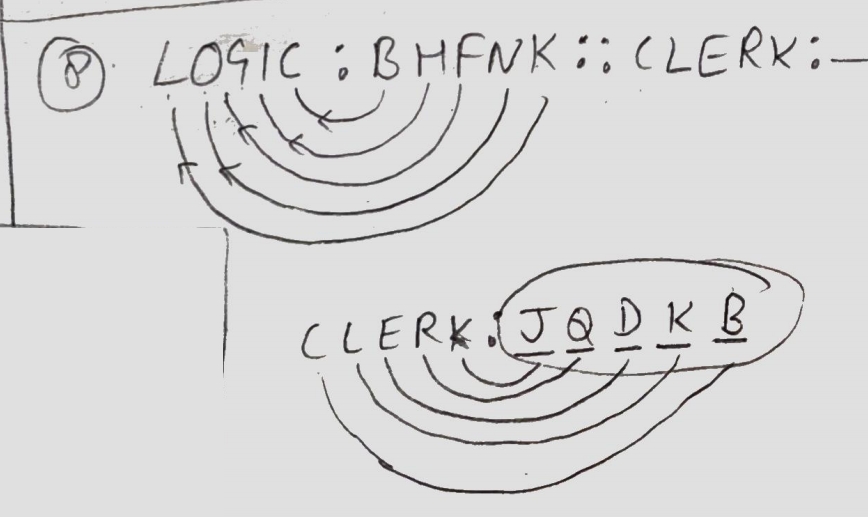 8. LOGIC : BHFNK :: CLERK : _
CLERK : J Q D K B